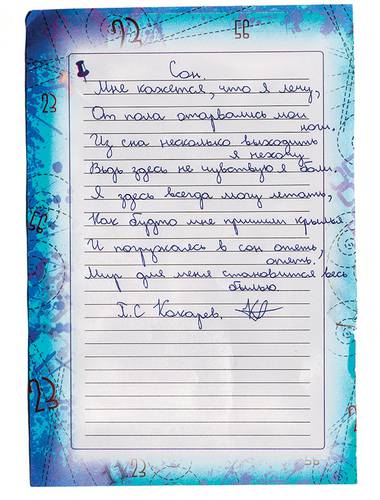 23
56
Сон.
Мне кажется, что я лечу,
От пола оторвались мои
ноги.
Из сна нисколько выходить
я нехочу
Ведь здесь не чувствую я боли.
23
Я здесь всегда могу летать,
Как будто мне пришили крылья
56
И погружаясь в сон опять,
опять,
Мир для меня становится весь
былью.
П.С Кокарев.
23
23
56